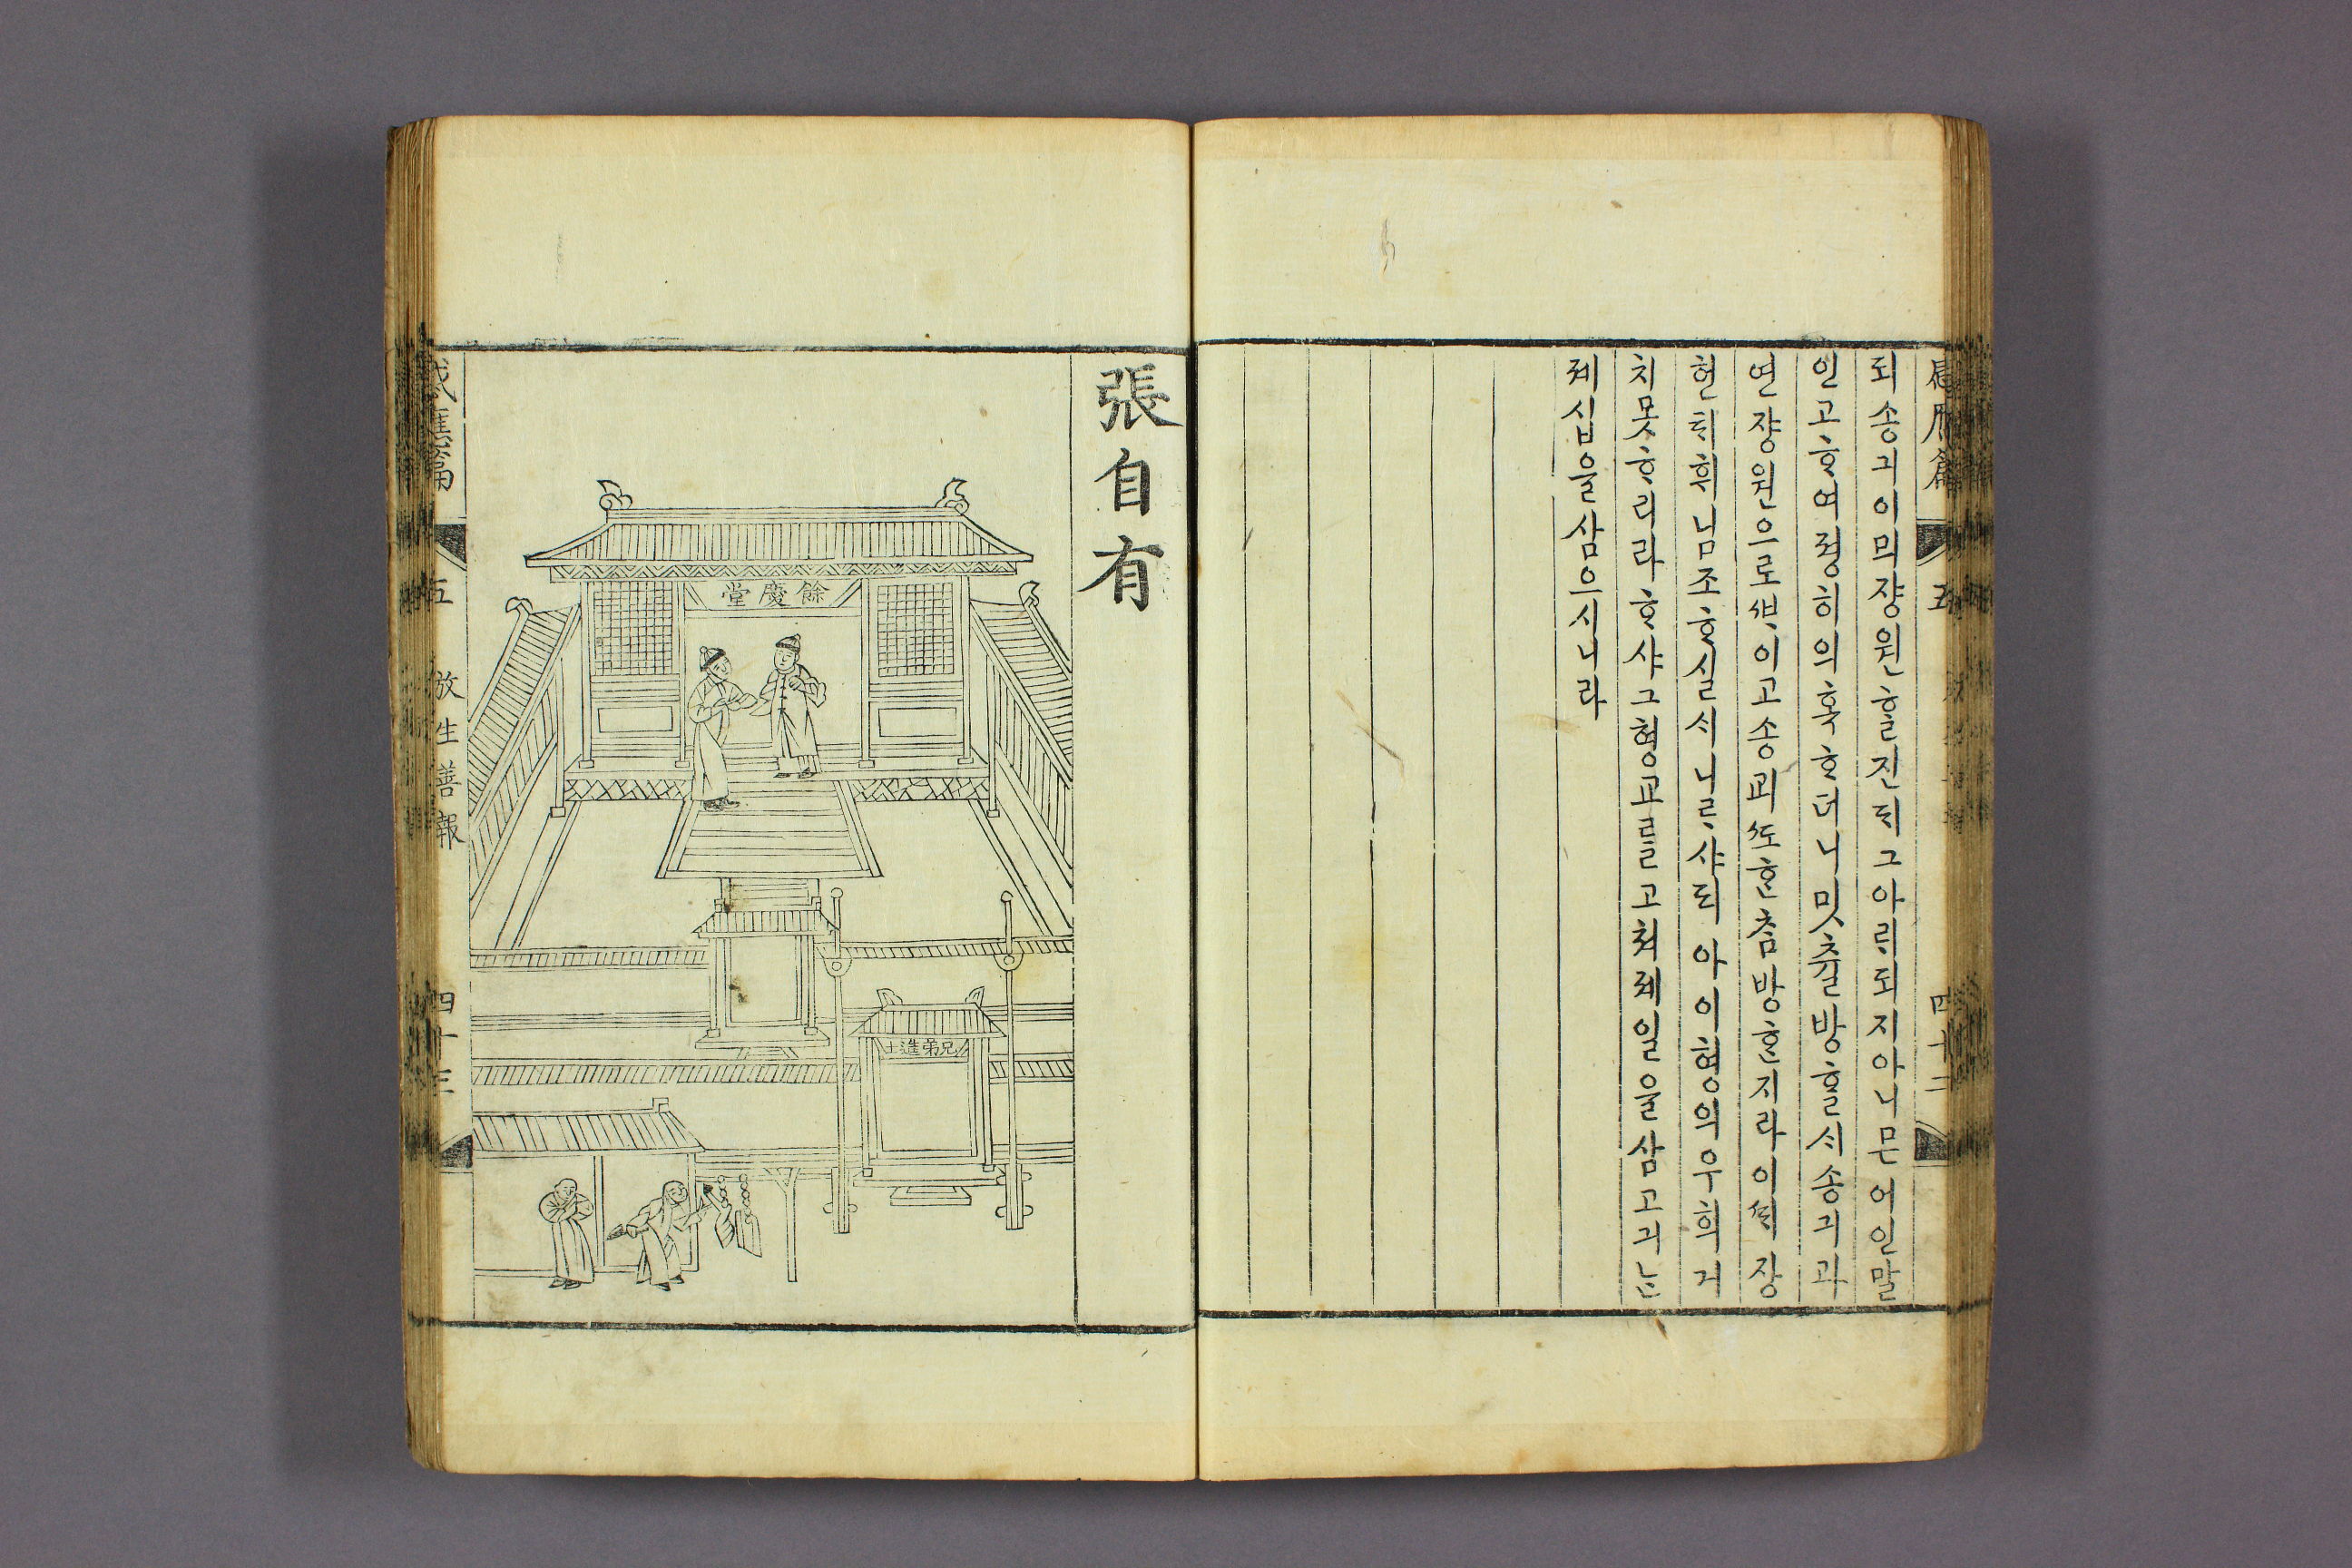 感應篇 五 四十二
되송긔이믜쟝원ᄒᆞᆯ진ᄃᆡ그아ᄅᆡ되지아니믄어인말
인고ᄒᆞ여졍히의혹ᄒᆞ더니밋츌방ᄒᆞᆯᄉᆡ송긔과
연쟝원으로ᄲᆡ이고송ᄀᆈᄯᅩᄒᆞᆫ참방ᄒᆞᆫ지라이ᄯᅢ쟝
헌ᄐᆡ휘님조ᄒᆞ실ᄉᆡ니ᄅᆞ샤ᄃᆡ아이형의우희거
치못ᄒᆞ리라ᄒᆞ샤그형교를고쳐졔일을삼고긔ᄂᆞᆫ
졔십을삼으시니라
張自有
餘慶堂
兄弟進士
感應篇 五 放生善報 四十三